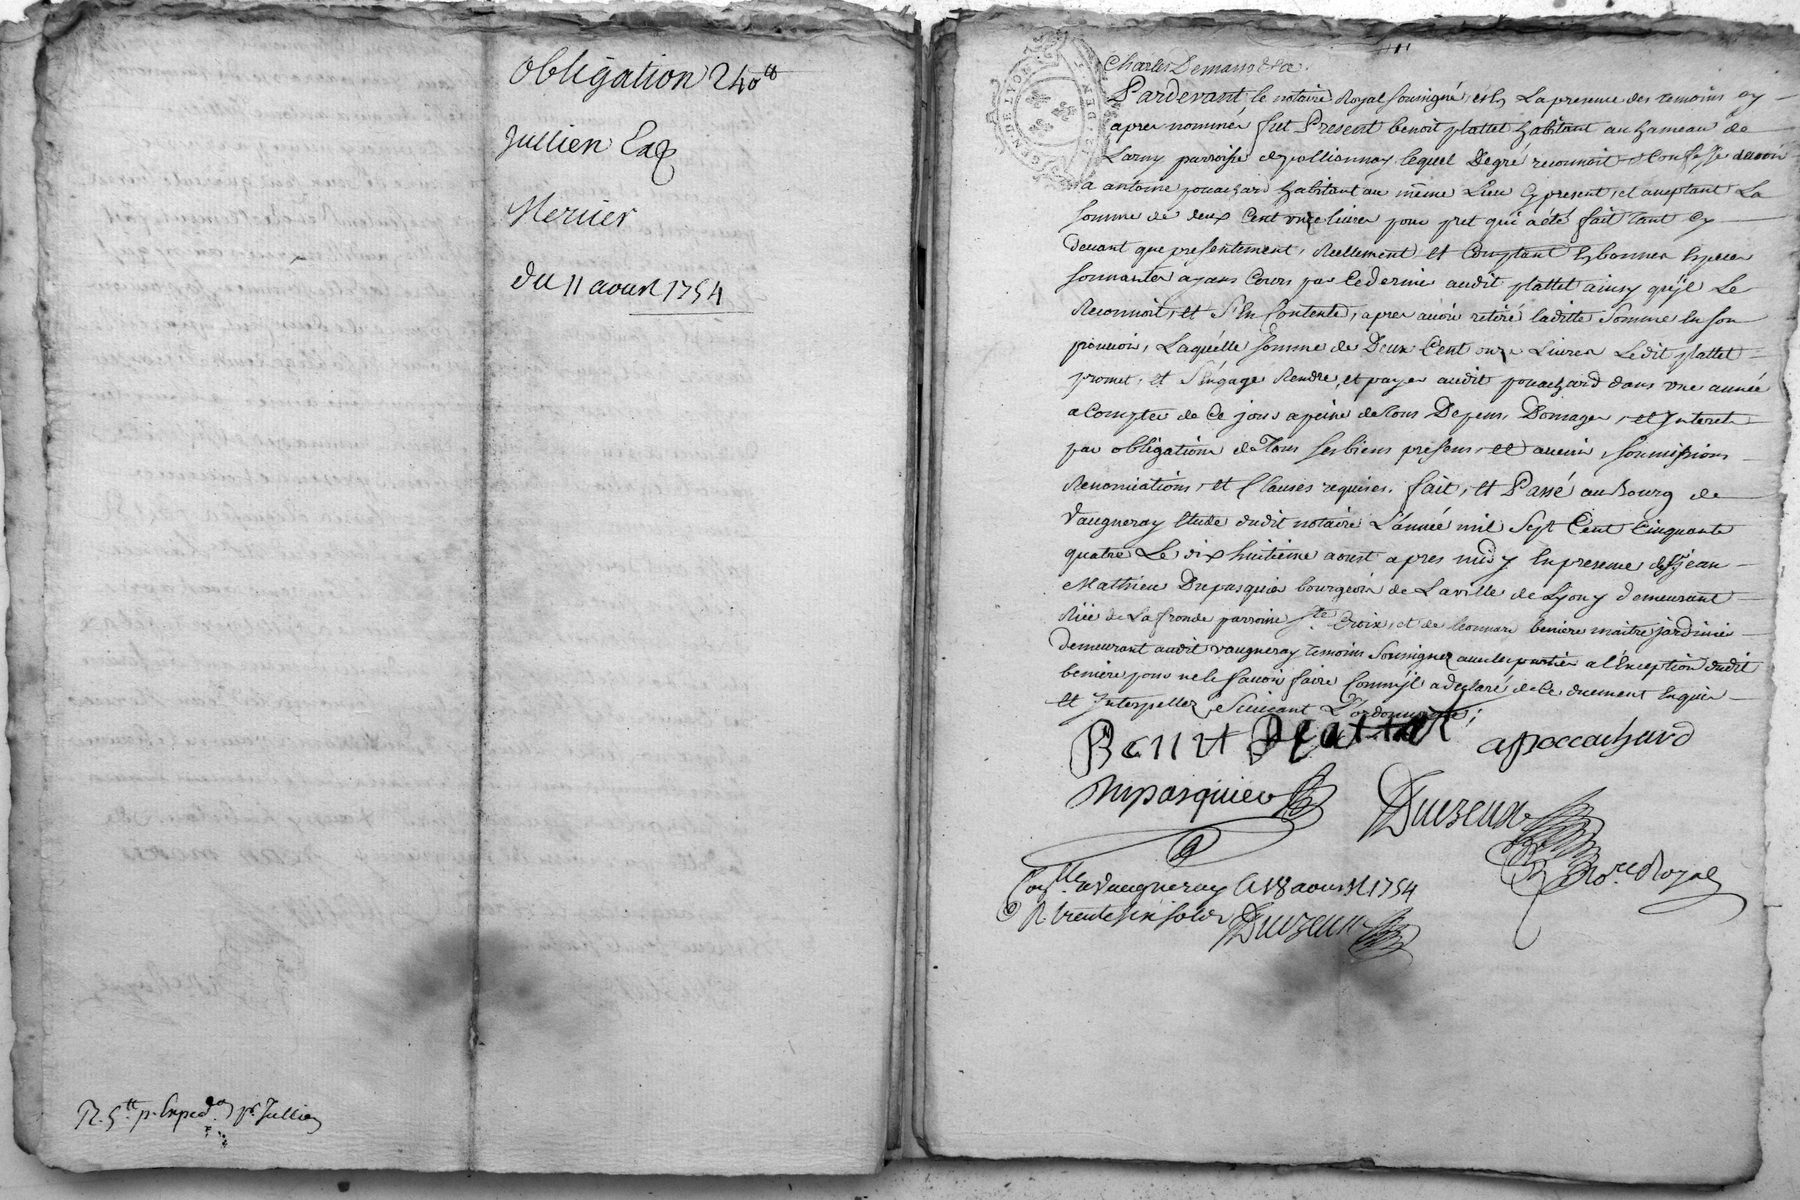 Obligation 240 tt
Jullien Exp
Mercier
du 11 aoust 1754
R. 5 tt p. Exped.on pr. Jullien
GEN. DE LYON
Pardevant le notaire Royal sousigné, et En La presence des temoins cy
apres nommés fut Present benoit plattet habitant au hameau de
Larny parroisse de pollionnay, lequel Degré reconnoit et Confesse devoir
a antoine pouachard habitant au même Lieu Cy present, et aceptant La
somme de deux Cent onze livres pour pret qui a été fait tant Cy
devant que presentement, Reellement et Comptant En bonnes Especes
sonnantes ayans Cours par Cedernié audit plattet ainsy qu'jl Le
Reconnoit, et S'En Contente, apres avoir retiré laditte Somme En son
pouvoir, Laquelle somme de Deux Cent onze Livres Ledit plattet
promet, et S'Engage Rendre, et payer audit pouachard dans une année
a Compter de Ce jour a peine de tous Depens, Domages, et Interets
par obligation de Tous ses biens presens, et avenir, soumissions
Renonciations, et Clauses requises. fait, et Passé au Bourg de
Vaugneray Etude dudit notaire L'année mil Sept Cent Cinquante
quatre Le dix huitieme aoust apres midy En presence de Sr jean
Mathieu Dupasquier bourgeois de La ville de Lyon y demeurant
Rüe de La fronde parroisse Ste Croix, et de leonnard beniere maitre jardinier
demeurant audit vaugneray temoins Sousignez avec les parties a l'Exception dudit
beniere pour ne le savoir faire Comm'jl a declaré de Ce duement Enquis
et Interpellez, Suivant L'ordonnance;
Benoit Plattet apouachard
Dupasquier
Duizeux
No.re Royal
Con.lle a Vaugneray le 18 aoust 1754
R. trente six sols Duizeux